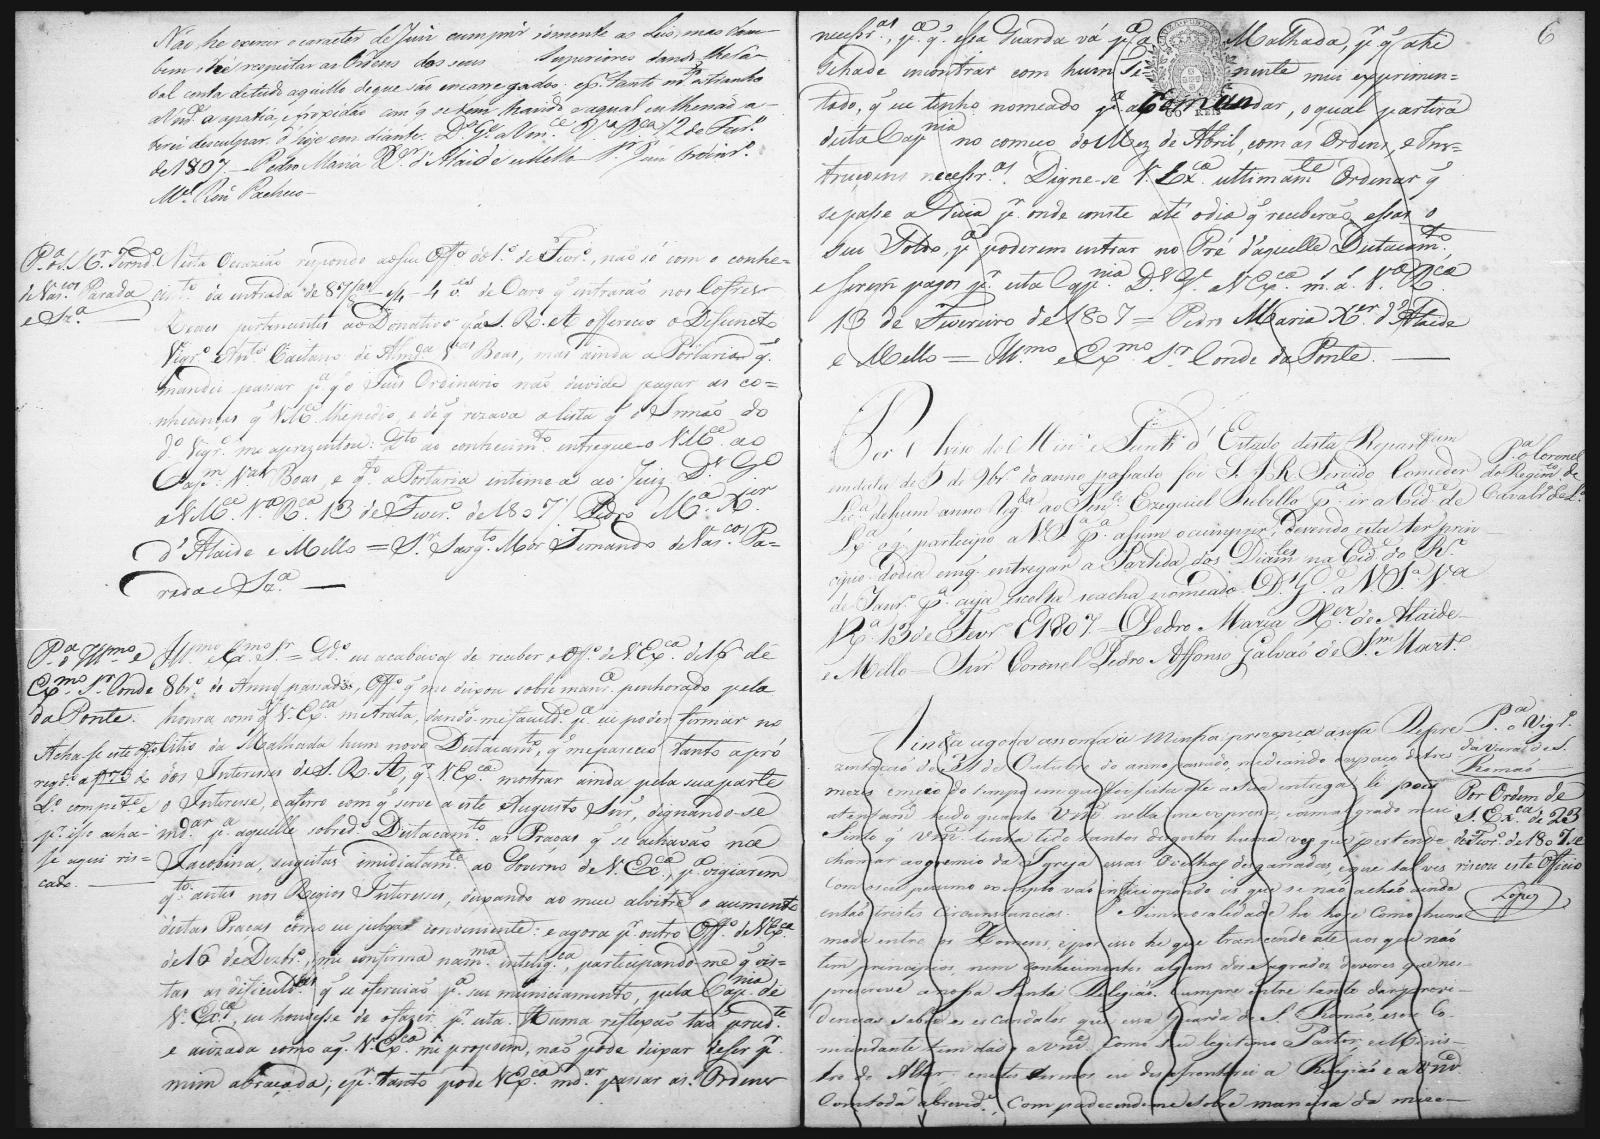 Não he exercer o caracter de Juiz cumprir sómente as Leis, mas tam-
bem respeitar as Ordens dos seus Superiores dando-lhes
conta de tudo aquillo de que são encarregados: por tanto
a apatia, e froxidão com q̃ se tem havido a qual
desculpar d'hoje em diante. D.s G.e a Vm.ce V.a R.ca 12 de Fev.ro
de 1807 — Pedro Maria X.er d'Ataide e Mello — S.r Juiz Ordinr.o
M.el Roiz Pacheco —
P.a o S. M.r Fernd.o
de Vas.cos Parada
e Sz.a
Nesta Occazião respondo ao seu Off.o do 1.o de Fevr.o, não só com o conhe-
cim.to da entrada de 87/8.as e 1/4 - 4 v.es de Ouro q̃ entrarão nos Cofres
Reaes pertencentes ao Donativo q̃ a S. R. A. offereceo o Defuncto
Vigr.o Ant.o Caetano de Almd.a V.as Boas, mas ainda a Portaria q̃
mandei passar p.a q̃ o Juiz Ordinario não duvide pagar as co-
nhecenças q̃ VM.ce lhe pedio, e de q̃ rezava a lista q̃ o Irmão do
d.o Vigr.o me aprezentou: q.to ao conhecim.to entregue-o VM.ce ao
Cap.m V.as Boas, e q.to a Portaria intime-a ao Juiz. D.s G.e
a VM.ce V.a R.ca 13 de Fever.o de 1807 // Pedro M.a X.er
d'Ataide e Mello = S.r Sarg.to Mór Fernando de Vas.cos Pa-
rada e Sz.a —
P.a o Ill.mo e
Ex.mo S.r Conde
da Ponte.
Acha-se este off.o
reg.do a
L.o compet.e e
p.r isso acha-
se aqui ris-
cado.
Ill.mo e Ex.mo S.r = Qd.o eu acabava de receber o Off.o de V. Ex.ca de 16 de
8br.o do Anno passado, Off.o q̃ me deixou sobre man.ra penhorado pela
honra com q̃ V. Ex.ca me trata, dando-me faculd.e p.a eu poder formar no
Citio da Malhada hum novo Destacam.to, q̃ me pareceo tanto a pró
dos Interesses de S. R. A., q.r V. Ex.ca mostrar ainda pela sua parte
o Interesse, e aferro com q̃ serve a este Augusto Snr., dignando-se
md.ar p.a aquelle sobred.o Destacam.to as Praças q̃ se achavão na
Jacobina, sugeitas imidiatam.te ao Governo de V. Ex.ca, p.a vigiarem
q.to antes nos Regios Interesses, deixando ao meu alvitre o aumento
destas Praças como eu julgar conveniente: e agora p.r outro Off.o de V. Ex.ca
de 16 de Dezbr.o, me confirma na m.ma intelig.ca, participando-me q̃ vis-
tas as dificuld.es q̃ se oferecião p.a seu municiamento, pela Cap.nia de
V. Ex.ca, eu houvesse de o fazer p.r esta. Huma reflexão tão prud.te
e avizada como a q̃ V. Ex.ca me propoem, não pode deixar de ser p.r
mim abraçada; e p.r tanto pode V. Ex.ca md.ar passar as Ordens
6
necessr.as, p.a q̃ essa Guarda vá p.a a Malhada, p.r q̃ ahi
se hade encontrar com hum Tenente mui exprimen-
tado, q̃ eu tenho nomeado p.a a Comandar, o qual partirá
desta Cap.nia no começo do Mez de Abril, com as Ordens, e Ins-
trucçoens necessr.as. Digne-se V. Ex.ca ultimam.te Ordenar q̃
se passe a Guia p.r onde conste até o dia q̃ receberão essas o
seu Soldo, p.a poderem entrar no Pré d'aquelle Destacam.to,
e serem pagos p.r esta Cap.nia D.s G.e a V. Ex.ca m. a. V.a R.ca
13 de Fevereiro de 1807 = Pedro Maria X.er d'Ataide
e Mello = Ill.mo e Ex.mo S.r Conde da Ponte. —
P.a o Coronel
do Regim.to de
Caval.ra de L.a
Por Aviso do Min.o d'Estado desta Repartiçam
em data de 5 de 9br.o do anno passado foi S. A. R. Servido Conceder
Lic.a de hum anno ao Ezequiel p.a ir a Cid.e de
Lx.a o q̃ participo a V. S.a p.a assim o cumprir, devendo esta ter prin-
cipio do dia em q̃ entregar a Partida dos Diam.tes na Cid.e do R.o
de Janr.o p.a cuja escolta se acha nomeado. D.s G.e a V. S.a V.a
R.ca 13 de Fevr.o 1807. — Pedro Maria X.er de Ataide
e Mello — Snr. Coronel Pedro Affonso Galvão de S.m Mart.o
P.a o Vigr.o
da Vara de S.
Romão
Por Ordem de
S. Ex.ca de 23
de Fevr.o de 1807 se
riscou este Officio
Lopes
Ainda agora assoma á Minha prezença a sua Repre-
zentação de 31 de Outubro do anno passado, mediando espaço de tres
mezes e meio do tempo em que foi feita athe a sua entrega: li e pois
atentam.te tudo quanto Vm.ce nella me expressa, e a mao grado meu
Sinto q̃ Vm.ce tenha tido tantos desgostos huma ves que pertende
chamar ao gremio da Igreja essas Ovelhas desgarradas, e que talves
com o seu pessimo exemplo vão inficionando os que se não achão ainda
em tão tristes circunstancias. A immoralidade he hoje como huma
moda entre os Homens, e por isso he que transcende até aos que não
tem principios, nem conhecimentos alguns dos sagrados deveres que nos
prescreve a nossa Santa Religião. Cumpre entre tanto dar provi-
dencias sobre os escandalos que essa Guarda de S. Romão, e seu Co-
mandante tem dado a Vm.ce como seu legitimo Pastor, e Minis-
tro do Altar: e nestes termos eu desafrontarei a Religião e a Vm.ce
Com toda a brevid.e, compadecendo-me sobre maneira da mize-